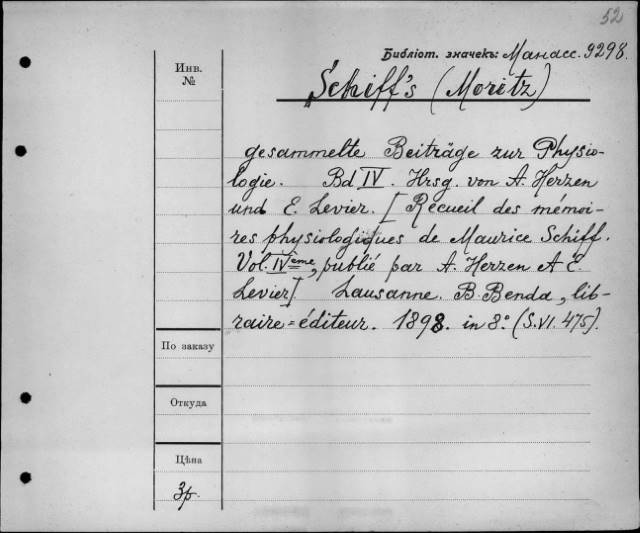 52
Библіот. значекъ: Манасс. 9298.
Инв.
№
Schiff's (Moritz)
gesammelte Beiträge zur Physio-
logie. Bd IV. Hrsg. von A. Herzen
und E. Levier. [Recueil des mémoi-
res physiologiques de Maurice Schiff.
Vol. IVème, publié par A. Herzen et E.
Levier]. Lausanne. B. Benda, lib-
raire=éditeur. 1898. in 8.° (S. VI. 475).
По заказу
Откуда
Цѣна
3р.